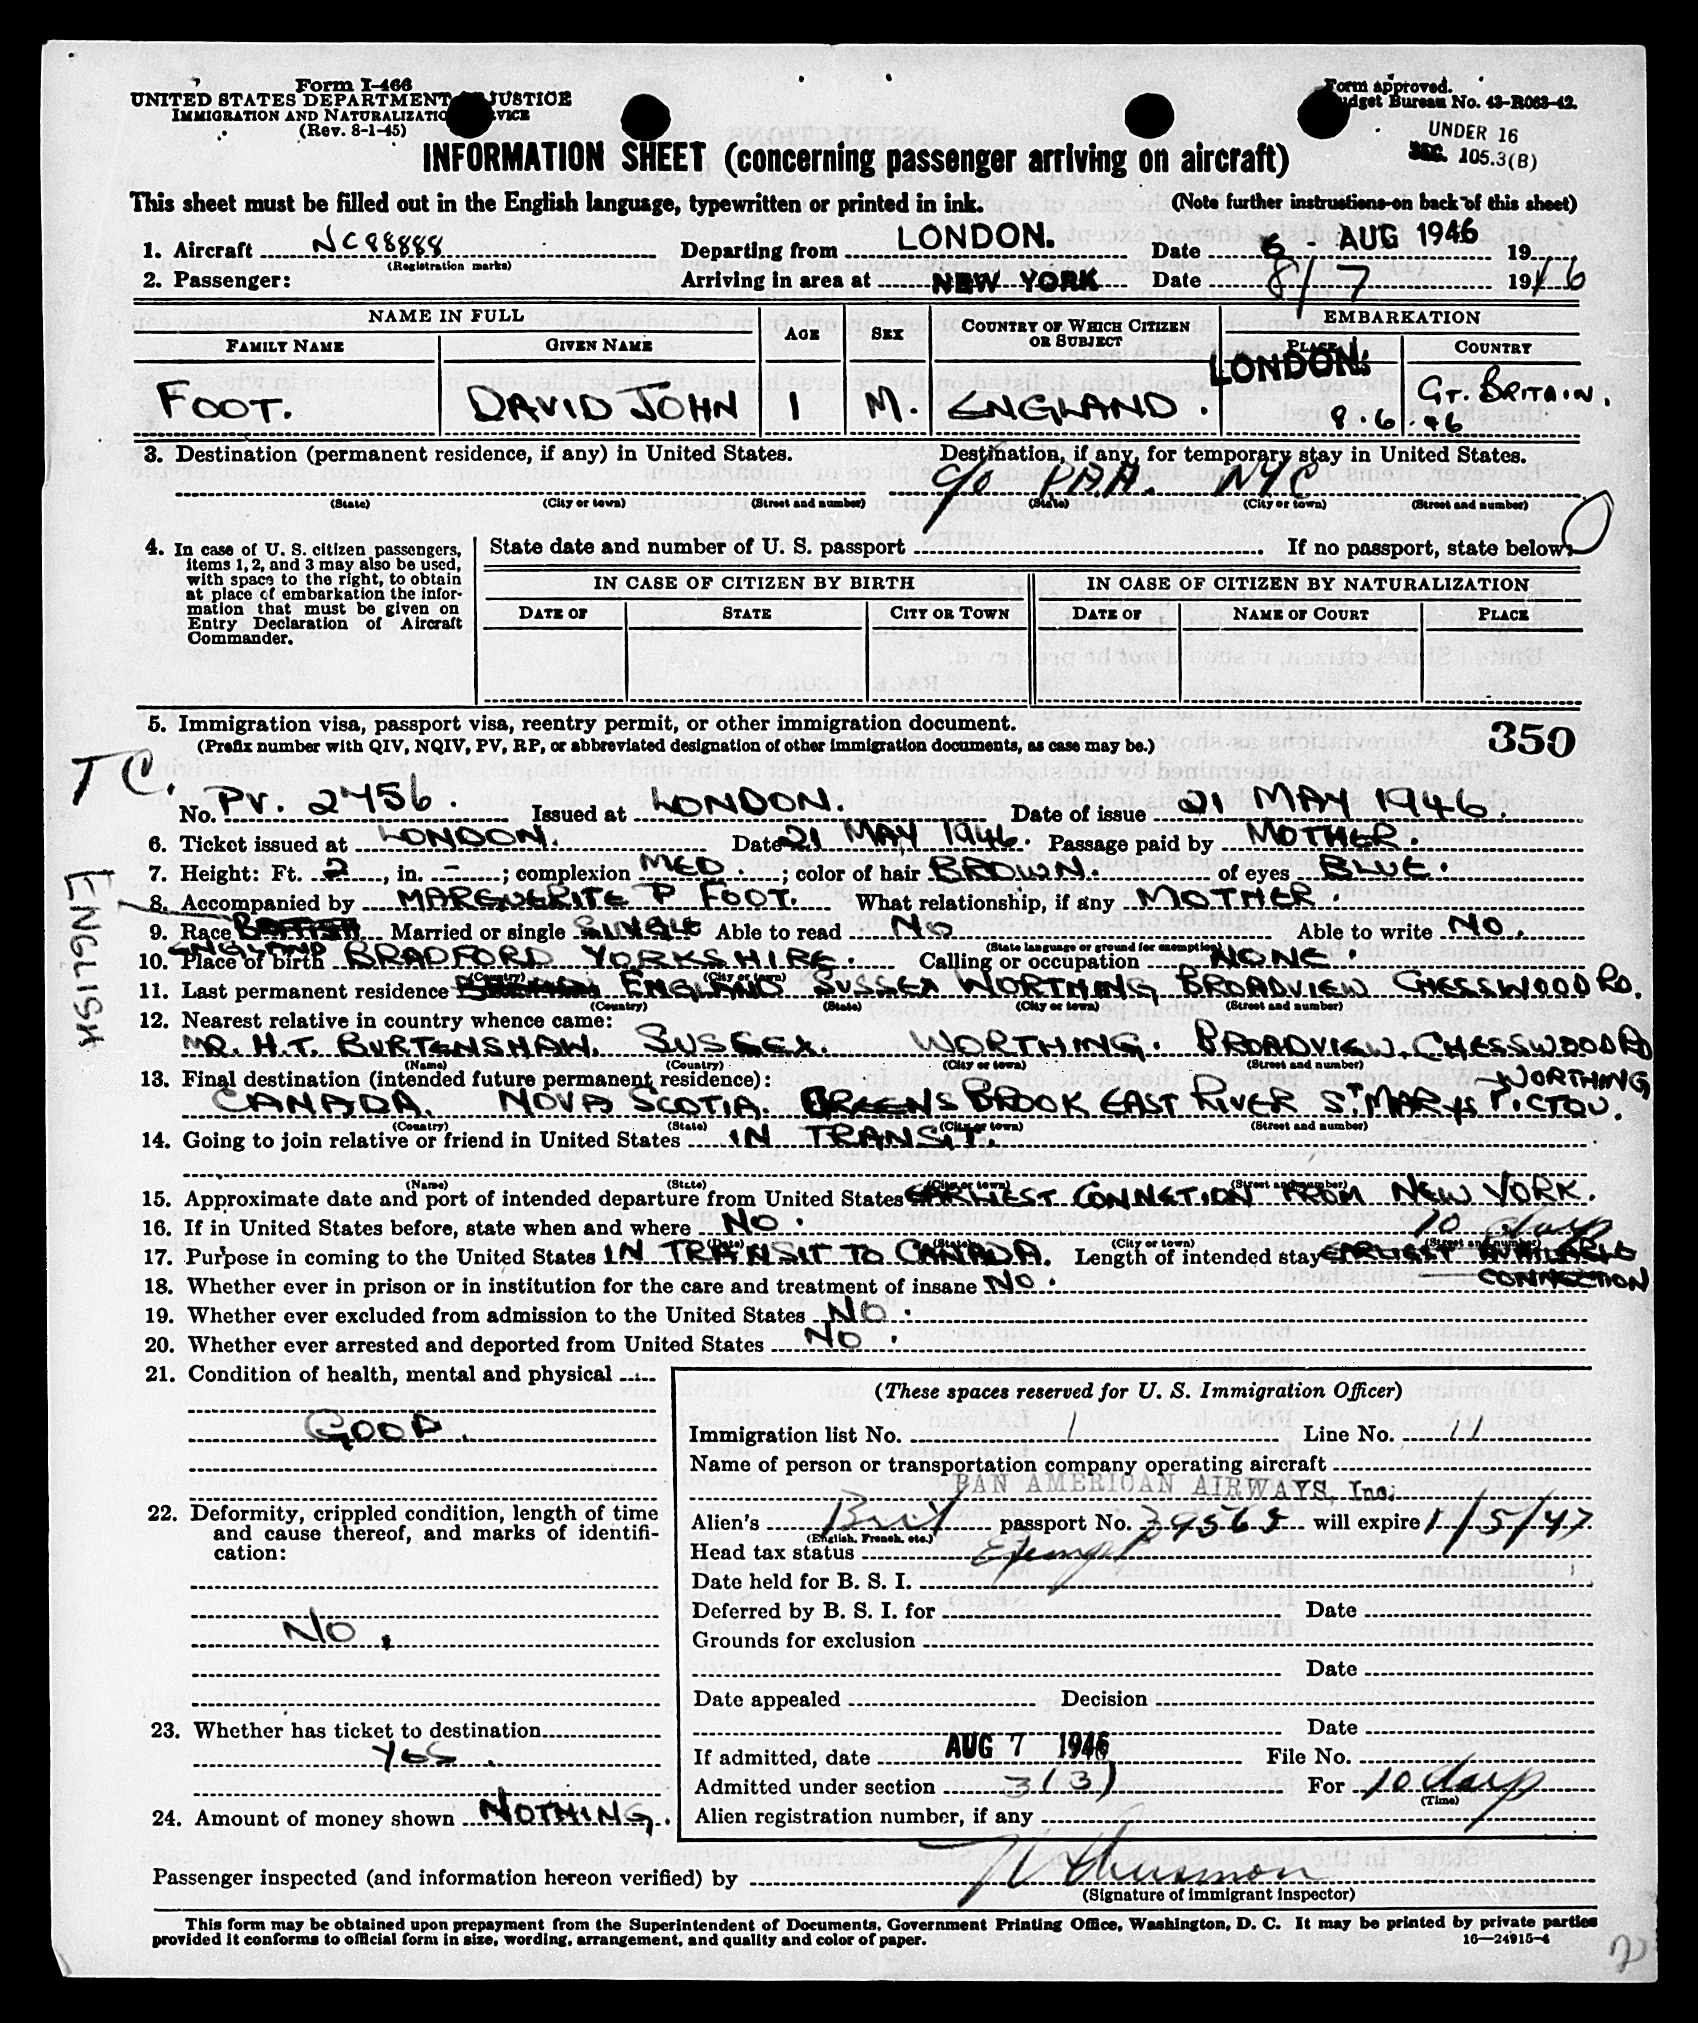 Form I-466
UNITED STATES DEPARTMENT JUSTICE
IMMIGRATION AND NATURALIZATION
(Rev. 8-1-45)
Form approved.
Budget Bureau No. 43-R063-42.
UNDER 16
SEC. 105.3(B)
INFORMATION SHEET (concerning passenger arriving on aircraft)
This sheet must be filled out in the English language, typewritten or printed in ink. (Note further instructions on back of this sheet)
1. Aircraft NC88888 Departing from LONDON. Date 6 - AUG 1946 19
(Registration marks)
2. Passenger: Arriving in area at NEW YORK Date 8/7 1946
NAME IN FULL AGE SEX COUNTRY OF WHICH CITIZEN OR SUBJECT EMBARKATION
FAMILY NAME GIVEN NAME PLACE COUNTRY
FOOT. DAVID JOHN 1 M. ENGLAND. LONDON. GT. BRITAIN.
8.6.46
3. Destination (permanent residence, if any) in United States. Destination, if any, for temporary stay in United States.
c/o PAA. NYC
(State) (City or town) (Street and number) (State) (City or town) (Street and number)
4. In case of U. S. citizen passengers, items 1, 2, and 3 may also be used, with space to the right, to obtain at place of embarkation the information that must be given on Entry Declaration of Aircraft Commander.
State date and number of U. S. passport If no passport, state below:
IN CASE OF CITIZEN BY BIRTH IN CASE OF CITIZEN BY NATURALIZATION
DATE OF STATE CITY OR TOWN DATE OF NAME OF COURT PLACE
5. Immigration visa, passport visa, reentry permit, or other immigration document. 350
(Prefix number with QIV, NQIV, PV, RP, or abbreviated designation of other immigration documents, as case may be.)
TC.
No. PV. 2456. Issued at LONDON. Date of issue 21 MAY 1946.
6. Ticket issued at LONDON. Date 21 MAY 1946. Passage paid by MOTHER.
7. Height: Ft. 2, in. -; complexion MED.; color of hair BROWN. of eyes BLUE.
8. Accompanied by MARGUERITE P FOOT. What relationship, if any MOTHER.
ENGLISH
9. Race Married or single SINGLE Able to read NO Able to write NO.
(State language or ground for exemption)
10. Place of birth ENGLAND BRADFORD YORKSHIRE. Calling or occupation NONE.
(Country) (City or town)
11. Last permanent residence ENGLAND SUSSEX WORTHING BROADVIEW CHESSWOOD RD.
(Country) (State) (City or town) (Street and number)
12. Nearest relative in country whence came:
MR. H.T. BURTENSHAW. SUSSEX. WORTHING. BROADVIEW. CHESSWOOD RD
WORTHING
(Name) (Country) (City or town) (Street and number)
13. Final destination (intended future permanent residence):
CANADA. NOVA SCOTIA. GREENS BROOK EAST RIVER ST MARYS PICTOU.
(Country) (State) (City or town) (Street and number)
14. Going to join relative or friend in United States IN TRANSIT.
(Name) (State) (City or town) (Street and number)
15. Approximate date and port of intended departure from United States EARLIEST CONNETION FROM NEW YORK.
16. If in United States before, state when and where NO.
(Date) (State) (City or town) (Street and number)
10 days
17. Purpose in coming to the United States IN TRANSIT TO CANADA. Length of intended stay EARLIEST AVAILABLE
CONNECTION
18. Whether ever in prison or in institution for the care and treatment of insane NO.
19. Whether ever excluded from admission to the United States NO.
20. Whether ever arrested and deported from United States NO.
21. Condition of health, mental and physical
GOOD.
22. Deformity, crippled condition, length of time and cause thereof, and marks of identification:
NO.
23. Whether has ticket to destination
YES.
24. Amount of money shown NOTHING.
(These spaces reserved for U. S. Immigration Officer)
Immigration list No. 1 Line No. 11
Name of person or transportation company operating aircraft
PAN AMERICAN AIRWAYS, Inc.
Alien's Brit passport No. 39565 will expire 1/5/47
(English, French, etc.)
Head tax status Exempt
Date held for B. S. I.
Deferred by B. S. I. for Date
Grounds for exclusion
Date
Date appealed Decision
Date
If admitted, date AUG 7 1946 File No.
Admitted under section 3(3) For 10 days
(Time)
Alien registration number, if any
Passenger inspected (and information hereon verified) by
(Signature of immigrant inspector)
This form may be obtained upon prepayment from the Superintendent of Documents, Government Printing Office, Washington, D. C. It may be printed by private parties
provided it conforms to official form in size, wording, arrangement, and quality and color of paper. 16—24915-4